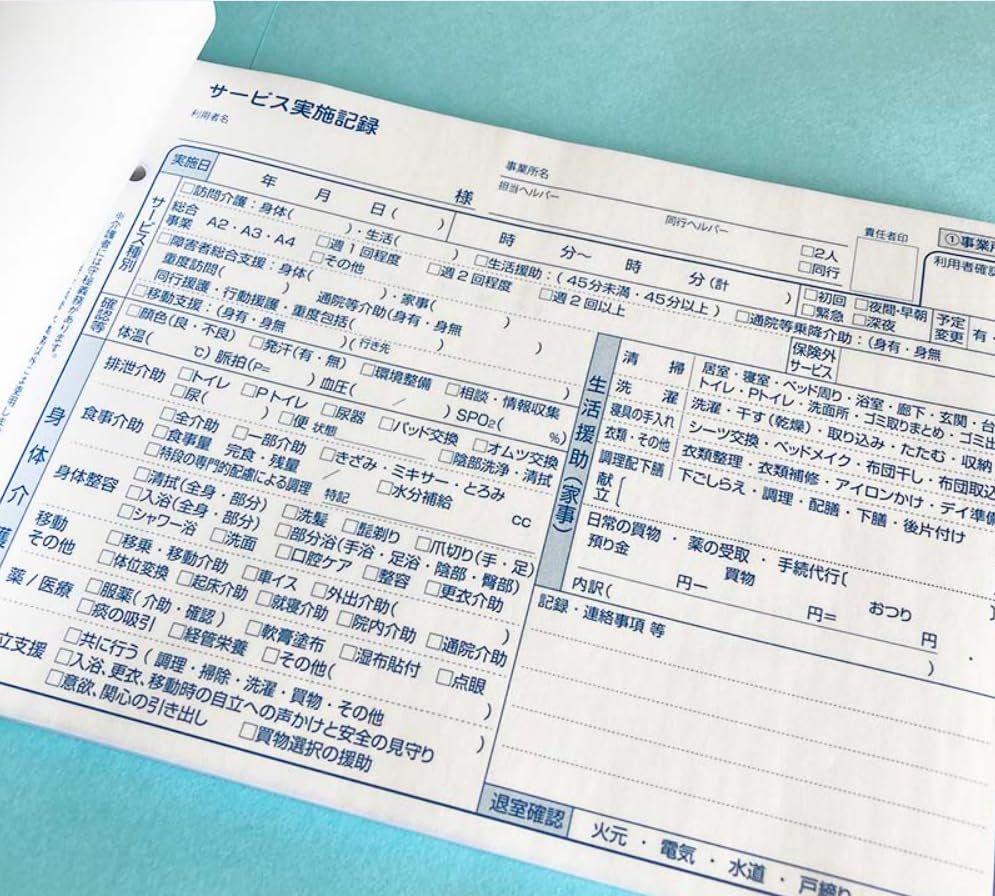 サービス実施記録
利用者名
様
事業所名
担当ヘルパー
同行ヘルパー
□2人
□同行
責任者印
①事業所
利用者確認
実施日 年 月 日( ) 時 分〜 時 分(計 )
□初回 □夜間・早朝
□緊急 □深夜
予定変更 有・
サービス種別
□訪問介護：身体( )・生活( ) □生活援助：(45分未満・45分以上) □通院等乗降介助：(身有・身無
総合事業 A2・A3・A4 □週1回程度 □週2回程度 □週2回以上
□その他
□障害者総合支援：身体( )・家事( )
保険外サービス
重度訪問( ) 通院等介助(身有・身無 )
同行援護・行動援護・重度包括( )
□移動支援：(身有・身無 )(行き先 )
確認等
□顔色(良・不良) □発汗(有・無) □環境整備 □相談・情報収集
体温( ℃) 脈拍(P= ) 血圧( / ) SPO₂( %)
身体介護
排泄介助 □トイレ □Pトイレ □尿器 □パッド交換 □オムツ交換
□尿( ) □便 状態 □陰部洗浄・清拭
食事介助 □全介助 □一部介助 □きざみ・ミキサー・とろみ
□食事量 完食・残量 / □水分補給 cc
□特段の専門的配慮による調理 特記
身体整容 □清拭(全身・部分) □洗髪 □髭剃り □爪切り(手・足)
□入浴(全身・部分) □部分浴(手浴・足浴・陰部・臀部)
□シャワー浴 □洗面 □口腔ケア □整容 □更衣介助
移動その他 □移乗・移動介助 □車イス □外出介助( )
□体位変換 □起床介助 □就寝介助 □院内介助 □通院介助
薬/医療 □服薬(介助・確認) □軟膏塗布 □湿布貼付 □点眼
□痰の吸引 □経管栄養 □その他( )
立支援 □共に行う(調理・掃除・洗濯・買物・その他 )
□入浴、更衣、移動時の自立への声かけと安全の見守り
□意欲、関心の引き出し □買物選択の援助
生活援助(家事)
清掃 居室・寝室・ベッド周り・浴室・廊下・玄関・台
トイレ・Pトイレ・洗面所・ゴミ取りまとめ・ゴミ出
洗濯 洗濯・干す(乾燥)・取り込み・たたむ・収納
寝具の手入れ シーツ交換・ベッドメイク・布団干し・布団取込
衣類・その他 衣類整理・衣類修補・アイロンかけ・デイ準備
調理配下膳 下ごしらえ・調理・配膳・下膳・後片付け
献立[
日常の買物・薬の受取・手続代行[
預り金 買物 おつり
円ー 円= 円
内訳( )
記録・連絡事項 等
退室確認 火元・電気・水道・戸締り